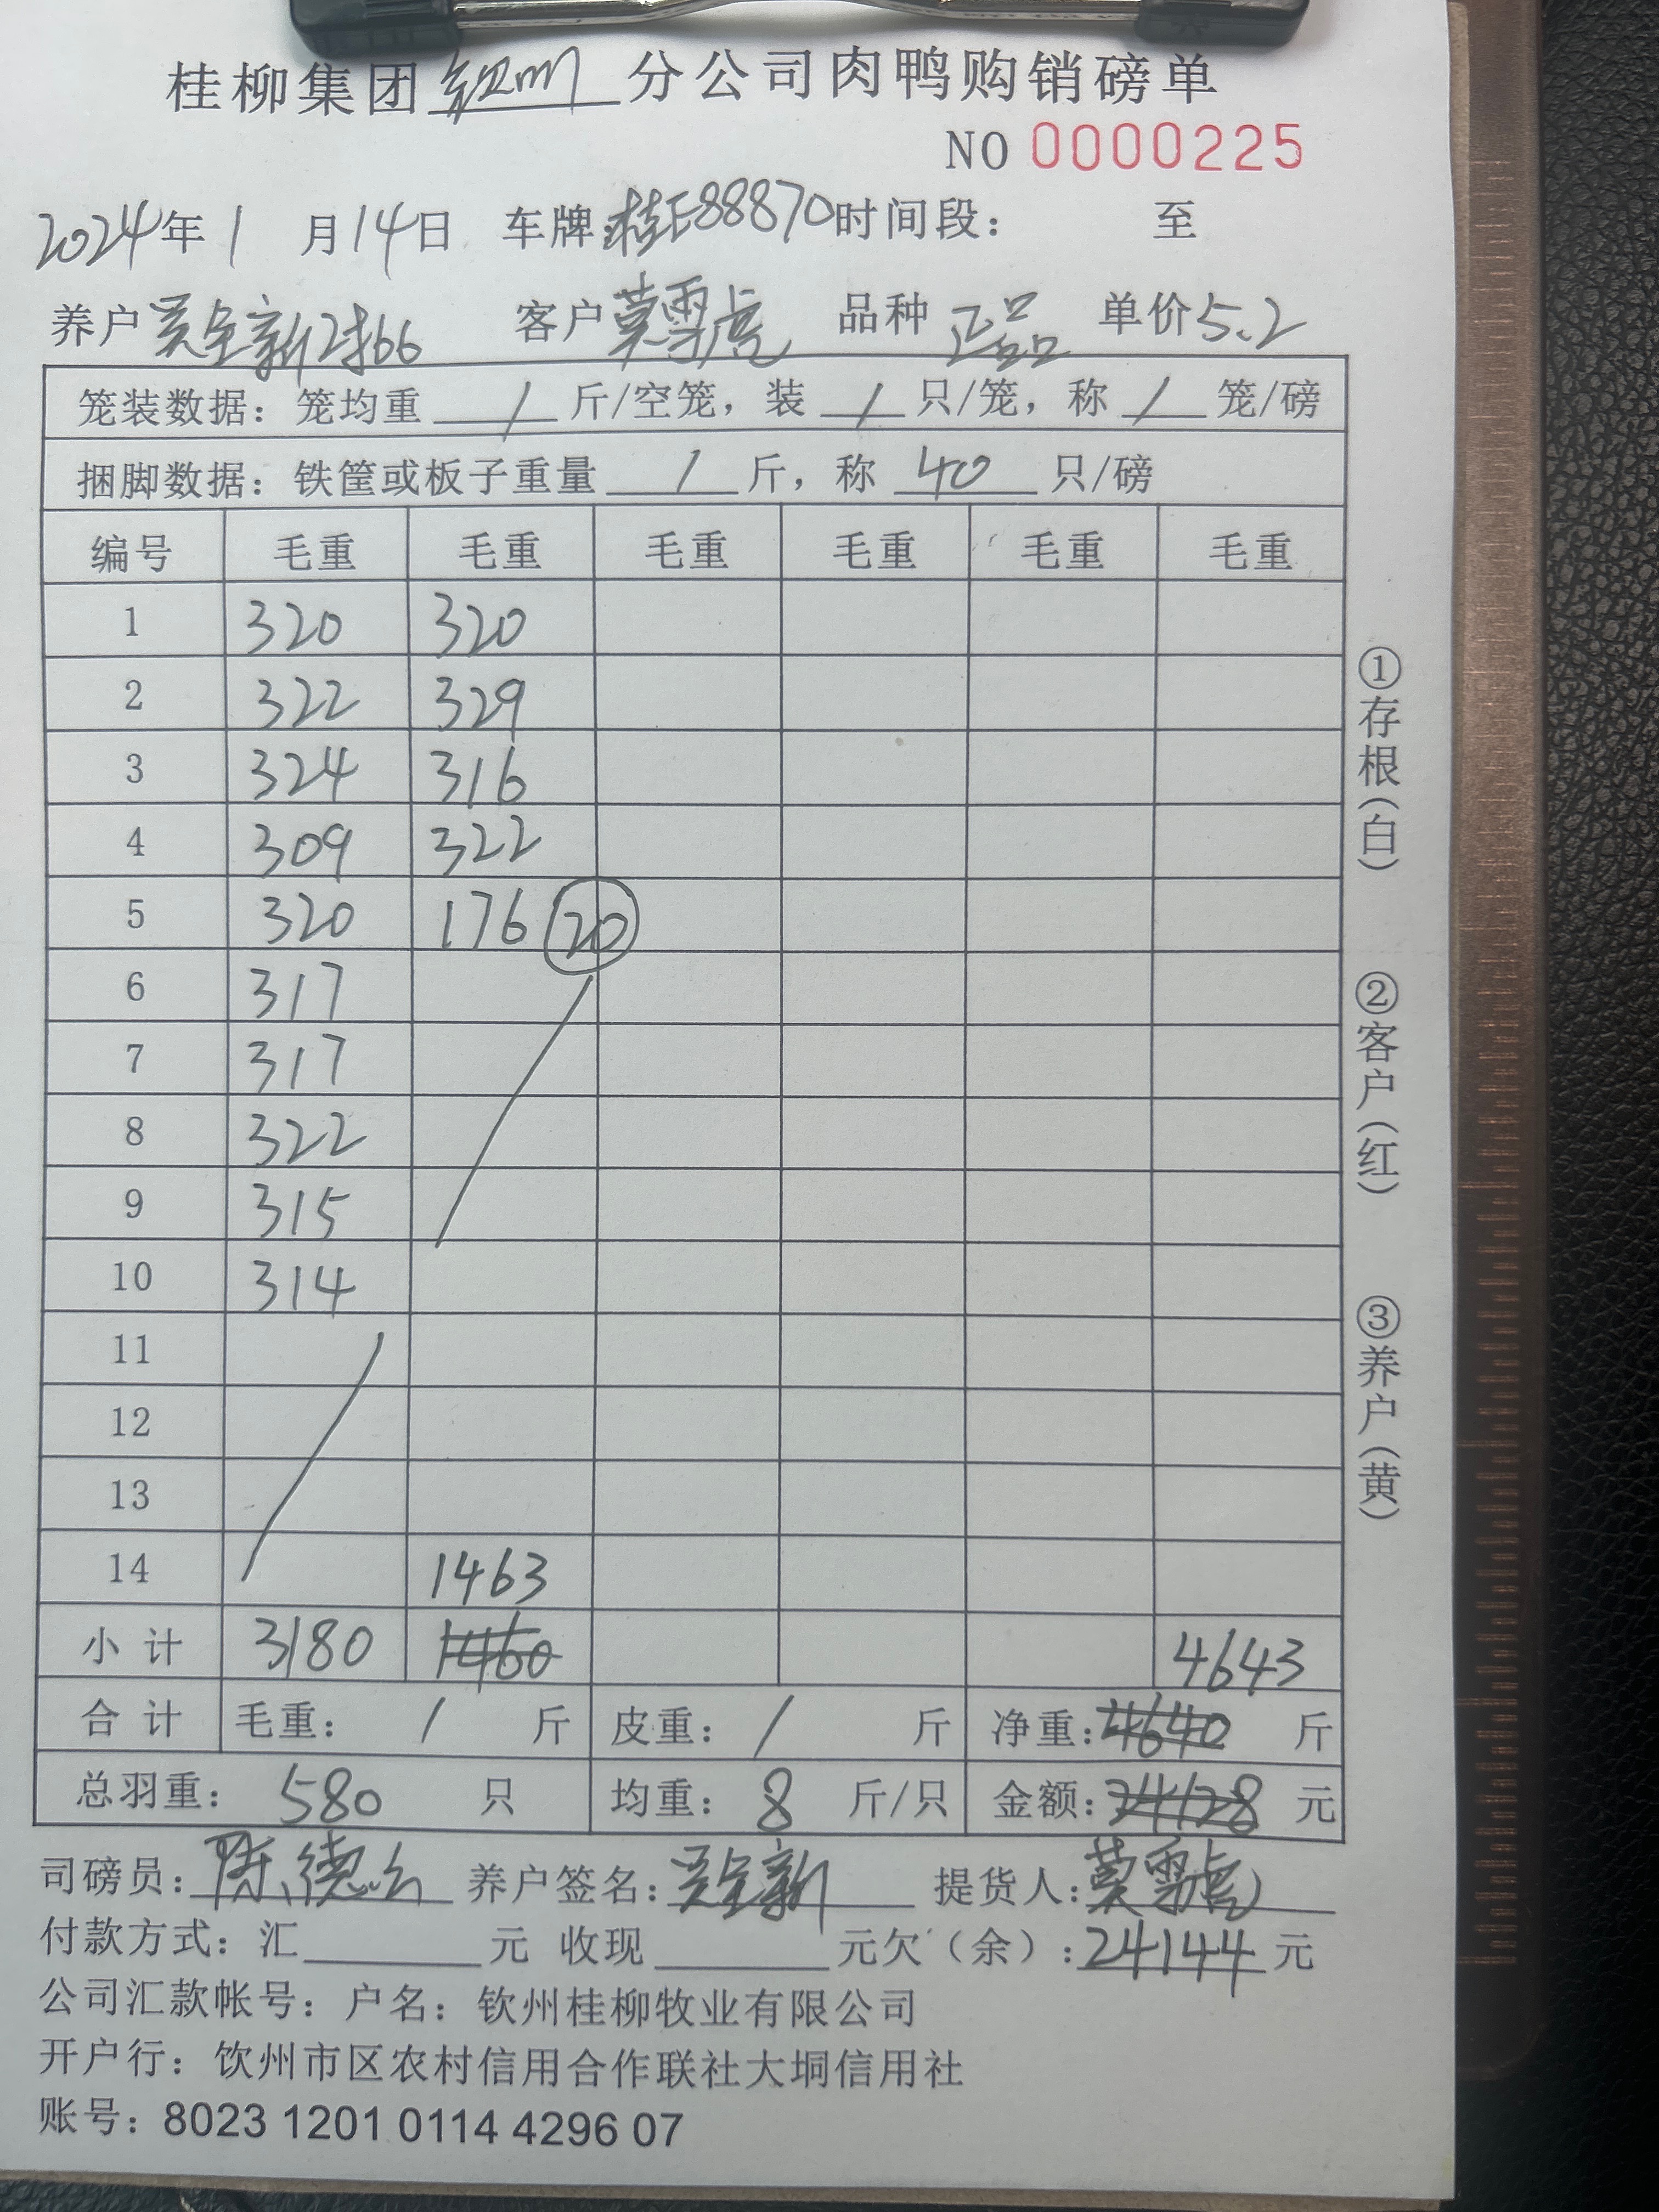 桂柳集团钦州分公司肉鸭购销磅单
NO 0000225
2024年1月14日 车牌:桂E88870时间段： 至
养户吴全新2#66 客户莫雪虎 品种正品 单价5.2
笼装数据：笼均重/斤/空笼，装/只/笼，称/笼/磅
捆脚数据：铁筐或板子重量/斤，称40只/磅
编号 毛重 毛重 毛重 毛重 毛重 毛重
1 320 320
2 322 329
3 324 316
4 309 322
5 320 176 20
6 317
7 317
8 322
9 315
10 314
11
12
13
14 1463
小计 3180 1460 4643
合计 毛重：/斤 皮重：/斤 净重:4640斤
总羽重：580只 均重：8斤/只 金额:24128元
司磅员:陈德 养户签名:吴全新 提货人:莫雪虎
付款方式：汇 元 收现 元欠（余）:24144元
公司汇款帐号：户名：钦州桂柳牧业有限公司
开户行：钦州市区农村信用合作联社大垌信用社
账号：8023 1201 0114 4296 07
①存根（白）
②客户（红）
③养户（黄）